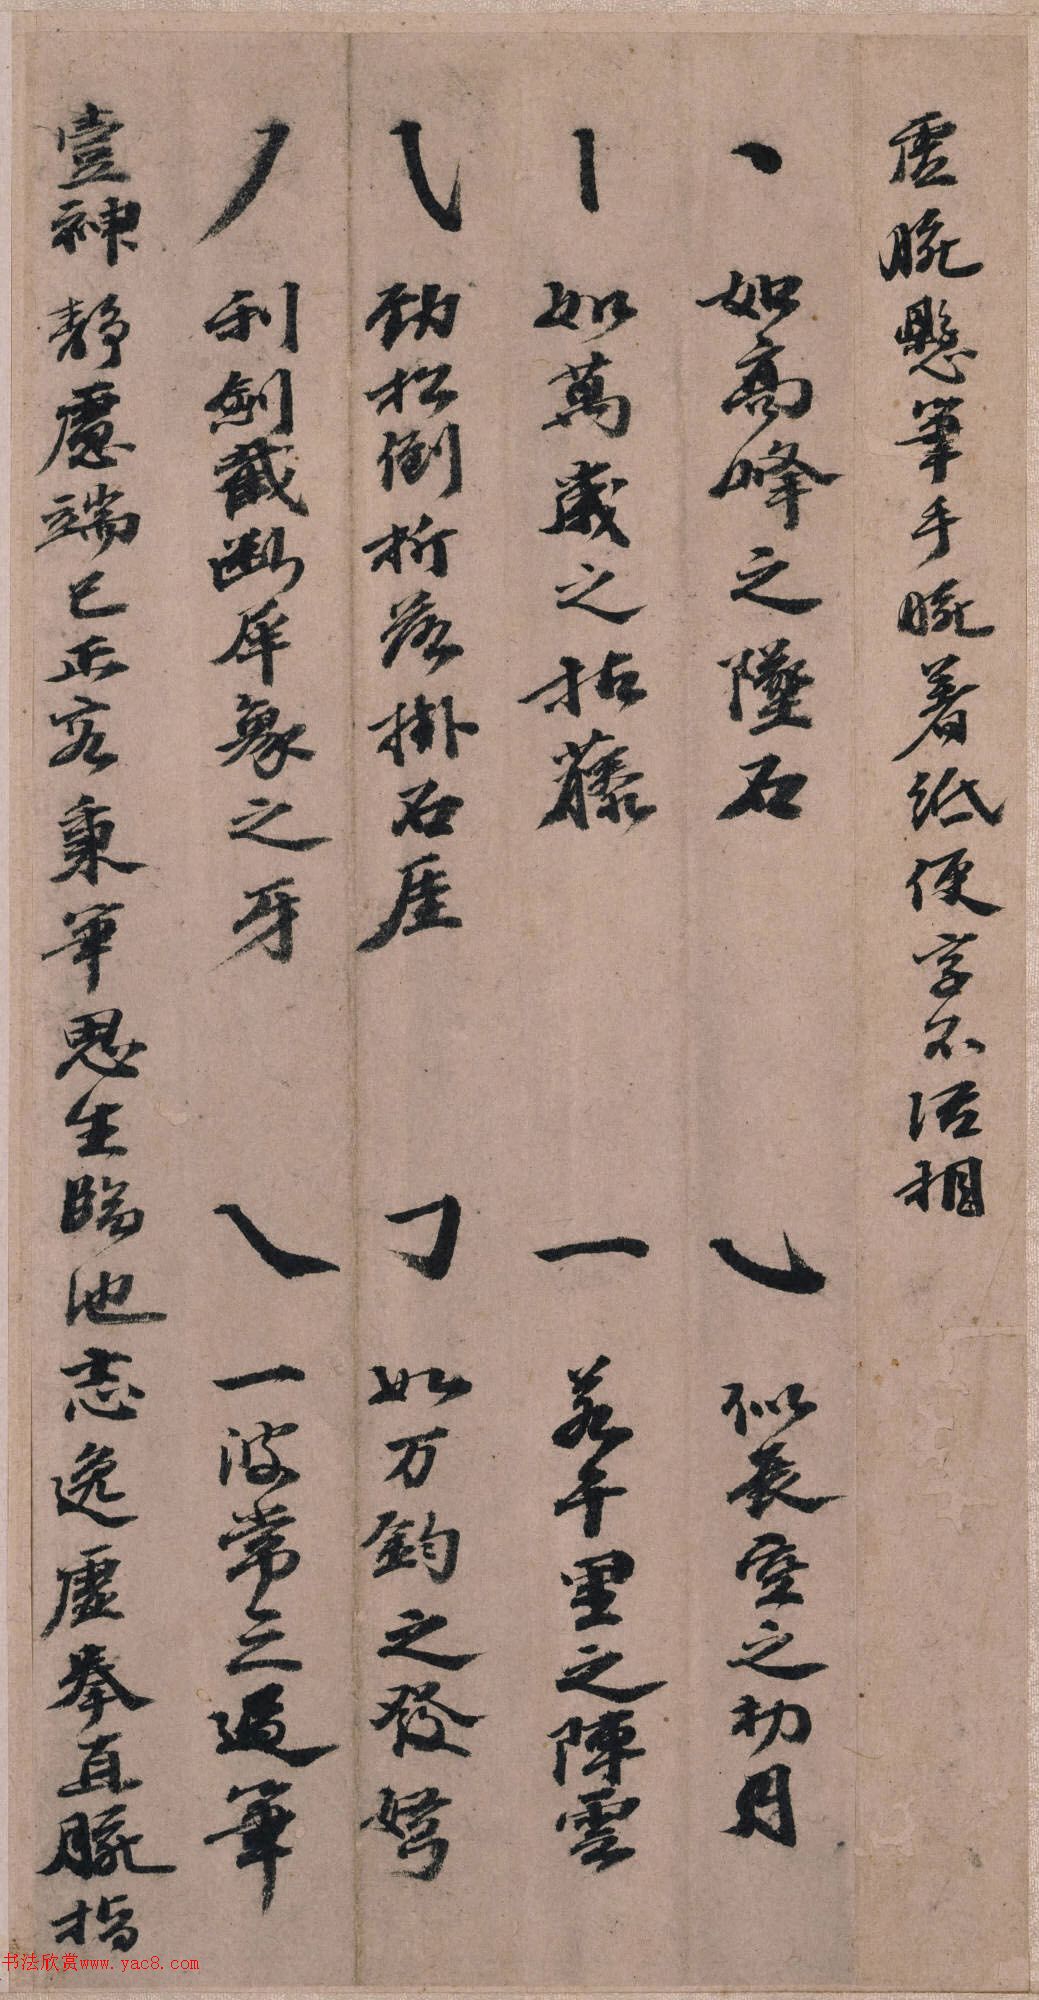 虛腕懸筆手腕著紙便字不活相
丶如高峰之墜石
乚似長空之初月
丨如萬歲之枯藤
一若千里之陣雲
㇂勁松倒折落掛石崖
㇆如万鈞之發弩
丿利劍截斷犀象之牙
㇏一波常三過筆
壹神靜慮端己正容秉筆思生臨池志逸虛拳直腕指
书法欣赏www.yac8.com